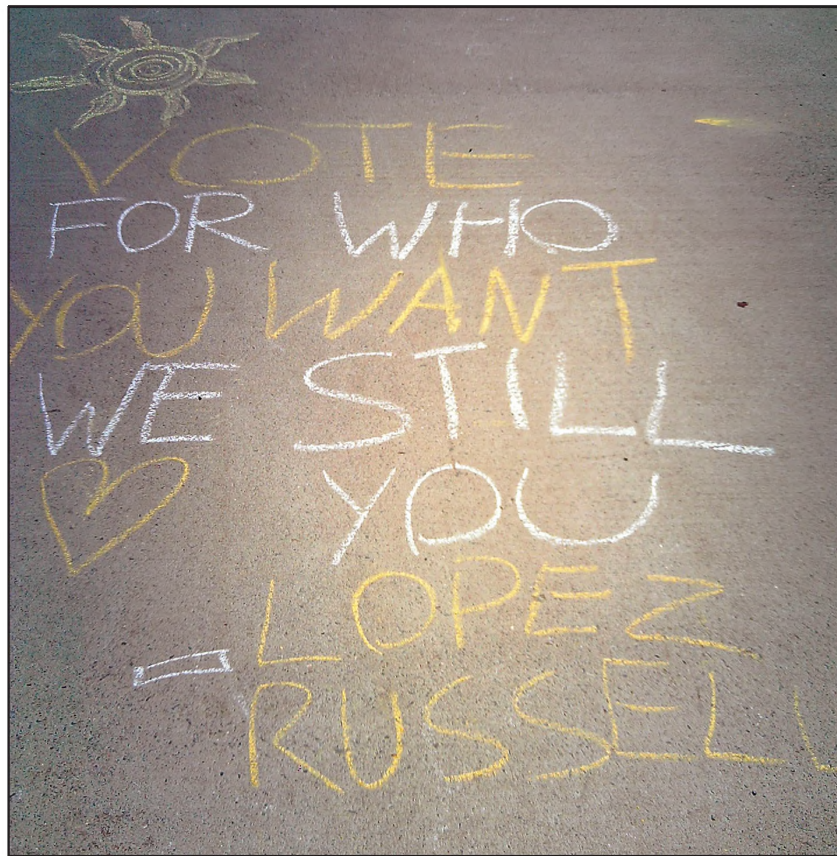 VOTE
FOR WHO
YOU WANT
WE STILL
♡ YOU
- LOPEZ
RUSSELL